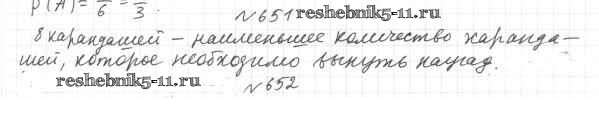 P(A) = 6 = 3.
№651 reshebnik5-11.ru
8 карандашей – наименьшее количество каранда–
шей, которое необходимо вынуть наугад.
reshebnik5-11.ru
№652